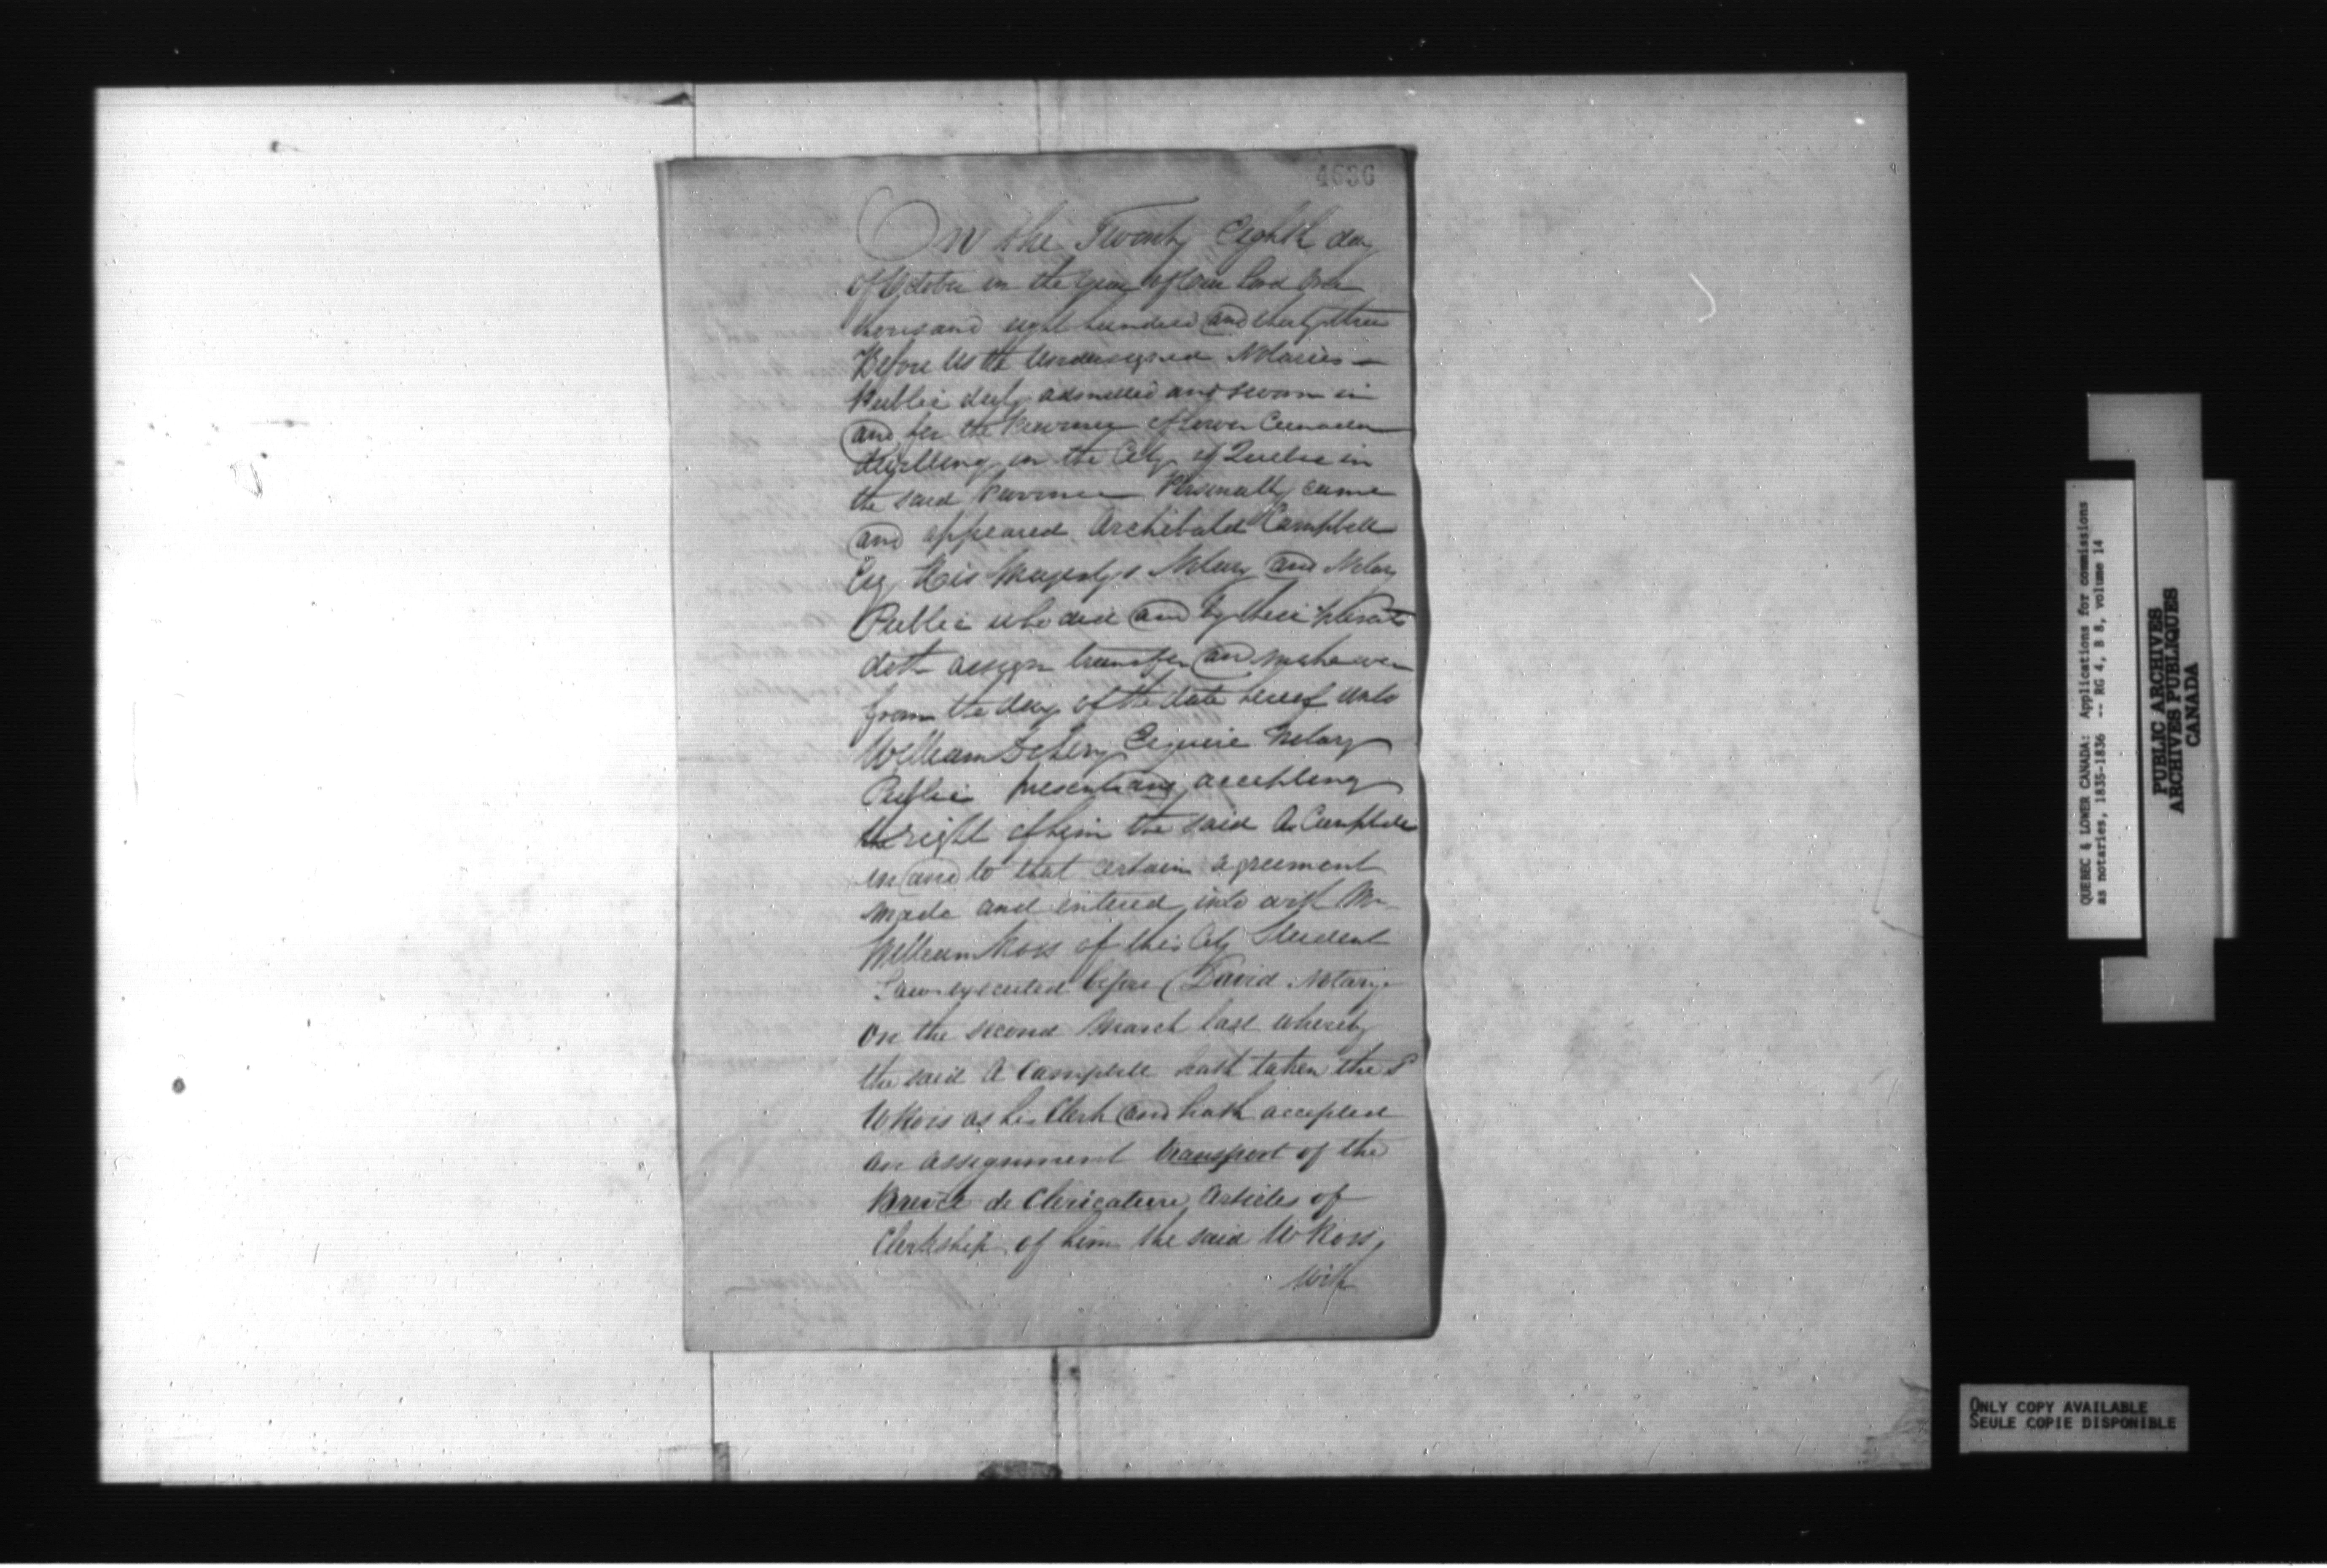 4636
On the Twenty Eighth day
of October in the year of our Lord One
thousand eight hundred and thirty three
Before Us the Undersigned Notaries
Public duly admitted and sworn in
and for the Province of Lower Canada
dwelling in the City of Quebec in
the said Province Personally came
and appeared Archibald Campbell
Esq His Majestys Notary and Notary
Public who did and by these presents
doth assign transfer and make over
from the day of the date hereof unto
William Esquire Notary
Public present and accepting
the right of him the said A Campbell
in and to that certain agreement
made and entered into with Mr
William Ross of this City Student
Law executed before David Notary
on the second March last whereby
the said A Campbell hath taken the s
W Ross as his Clerk and hath accepted
an assignment transport of the
Brevet de Clericature Articles of
Clerkship of him the said W Ross
with
QUEBEC & LOWER CANADA: Applications for commissions
as notaries, 1835-1836 -- RG 4, B 8, volume 14
PUBLIC ARCHIVES
ARCHIVES PUBLIQUES
CANADA
ONLY COPY AVAILABLE
SEULE COPIE DISPONIBLE